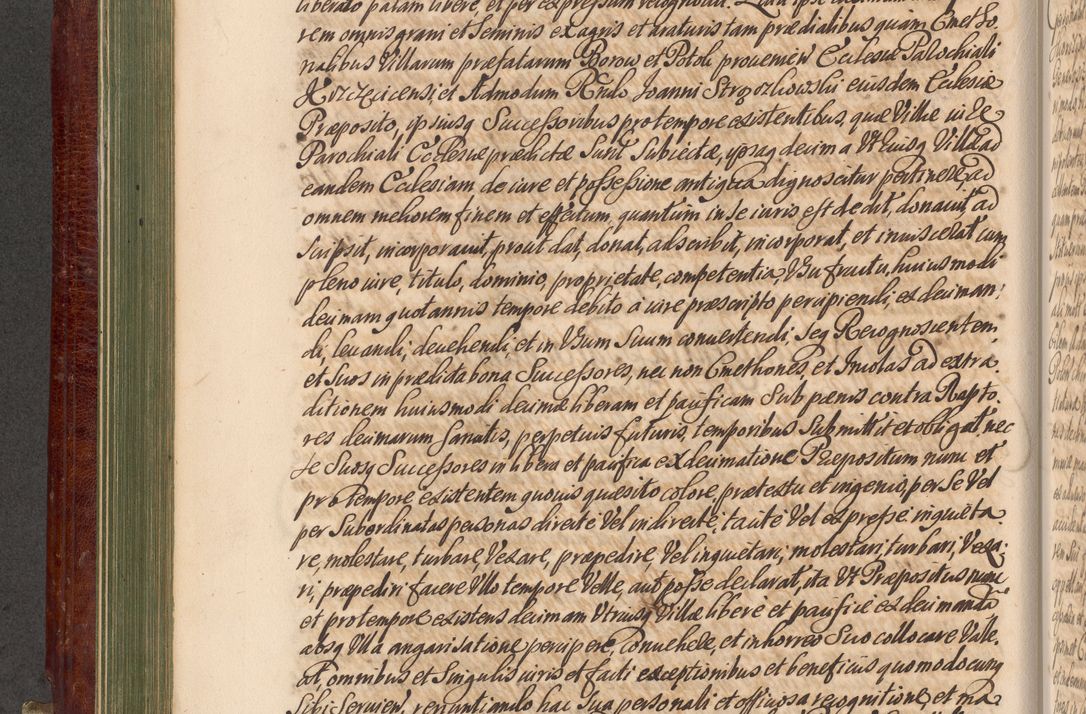 liberato palam libere, et per expressum recognovit. Quia ipse decimam
rem omnis grani et Seminis ex agris et araturis tam prædialibus quam Cmetho.
nalibus Villarum præfatarum Borow et Potok provenien Ecclesiæ Parochiali
et Admodum Rndo Joanni Strączkowski eiusdem Ecclesiæ
Præposito, ipsiusq Successoribus pro tempore existentibus, quæ Villæ
Parochiali Ecclesiæ prædictæ Sunt Subiectæ, ipsaq decima Utriusq Villæ ad
eandem Ecclesiam de iure et possessione antiqua dignoscitur pertinere ad
omnem meliorem finem et effectum, quantum in Se iuris est dedit, donavit, ad
scripsit, incorporavit, prout dat, donat, adscribit, incorporat, et inviscerat cum
pleno iure, titulo, dominio, proprietate, competentia, Usufructu, huiusmodi
decimam quotannis tempore debito a iure præscripto percipiendi, ex deciman:
di, levandi, devehendi, et in Usum Suum convertendi, Seq Recognoscentem
et Suos in prædicta bona Successores, nec non Cmethones, et Incolas ad extra.
ditionem huiusmodi decimæ liberam et pacificam Sub pænis contra Rapto.
res decimarum Sancitis, perpetuis futuris, temporibus Submittit et obligat nec
Se Suosq Successores in libera et pacifica exdecimatione Præpositum nunc et
pro tempore existentem quovis quæsito colore, prætextu et ingenio, per Se Vel
per Subordinatas personas directe Vel indirecte, tacite Vel expresse inquieta.
re, molestare, turbare, Vexare, præpedire, Vel inquietari, molestari, turbari, Vexa:
ri, præpediri facere Ullo tempore Velle, aut posse declarat, ita Ut Præpositus nunc
et pro tempore existens decimam Utriusq Villæ libere et pacifice ex decimandi
absq Ulla angarisatione percipere, Convehere, et in horreo Suo collocare Valeat.
at omnibus et Singulis iuris et facti exceptionibus et beneficiis quomodocunq
Sibi Servien, renuntiando hac Sua personali et officiosa recognitione, et ma